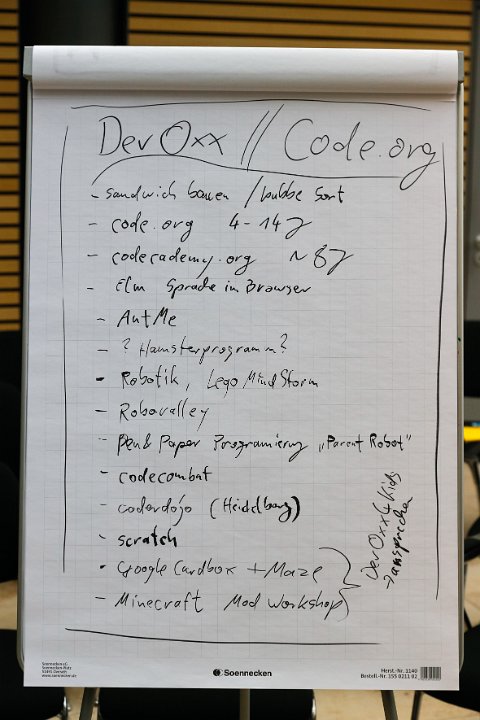 DevOxx // Code.org
- Sandwich bauen / bubble Sort
- code.org 4-14J
- codecademy.org ~8J
- Elm Sprache in Browser
- AntMe
- ? Hamsterprogramm?
- Robotik, Lego MindStorm
- Robovalley
- Pen & Paper Programierung „Parent Robot"
- codecombat
- coderdojo (Heidelberg)
- scratch
- Google Cardbox + Maze
- Minecraft Mod Workshop
DevOxx4Kids
→ ansprechen
Soennecken eG
Soennecken-Platz
51491 Overath
www.soennecken.de
Soennecken
Herst.-Nr. 1140
Bestell.-Nr. 155 0211 02